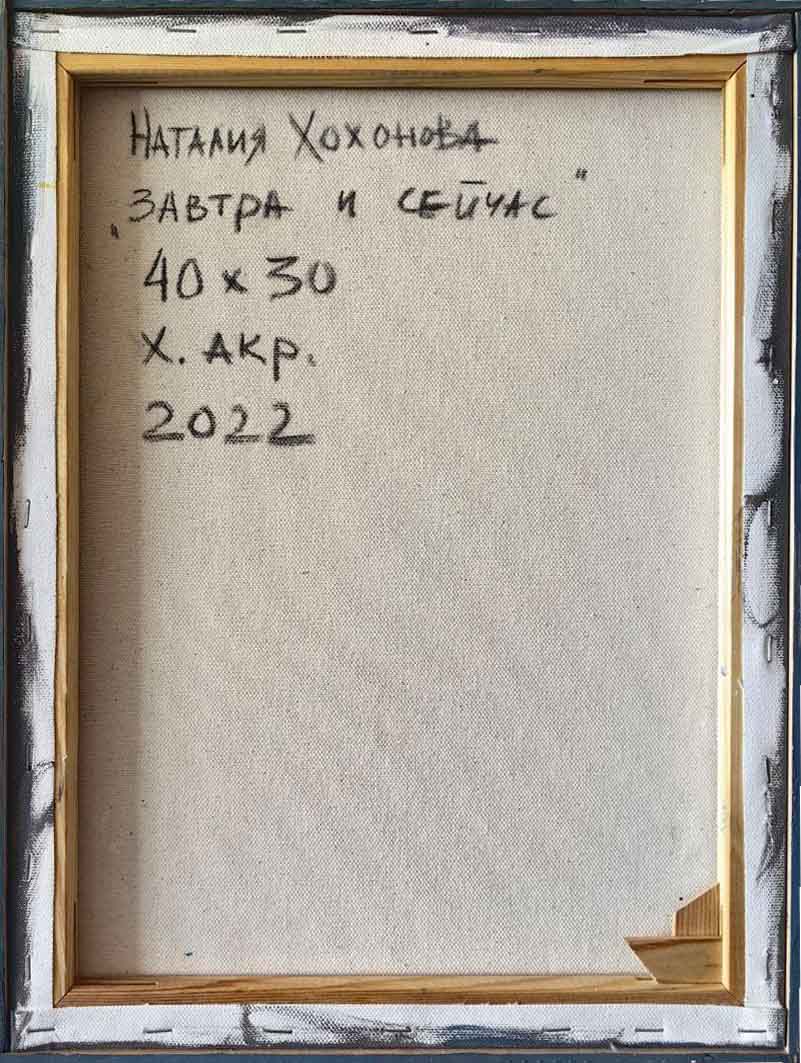 Наталия Хохонова
„Завтра и сейчас"
40 х 30
Х. акр.
2022